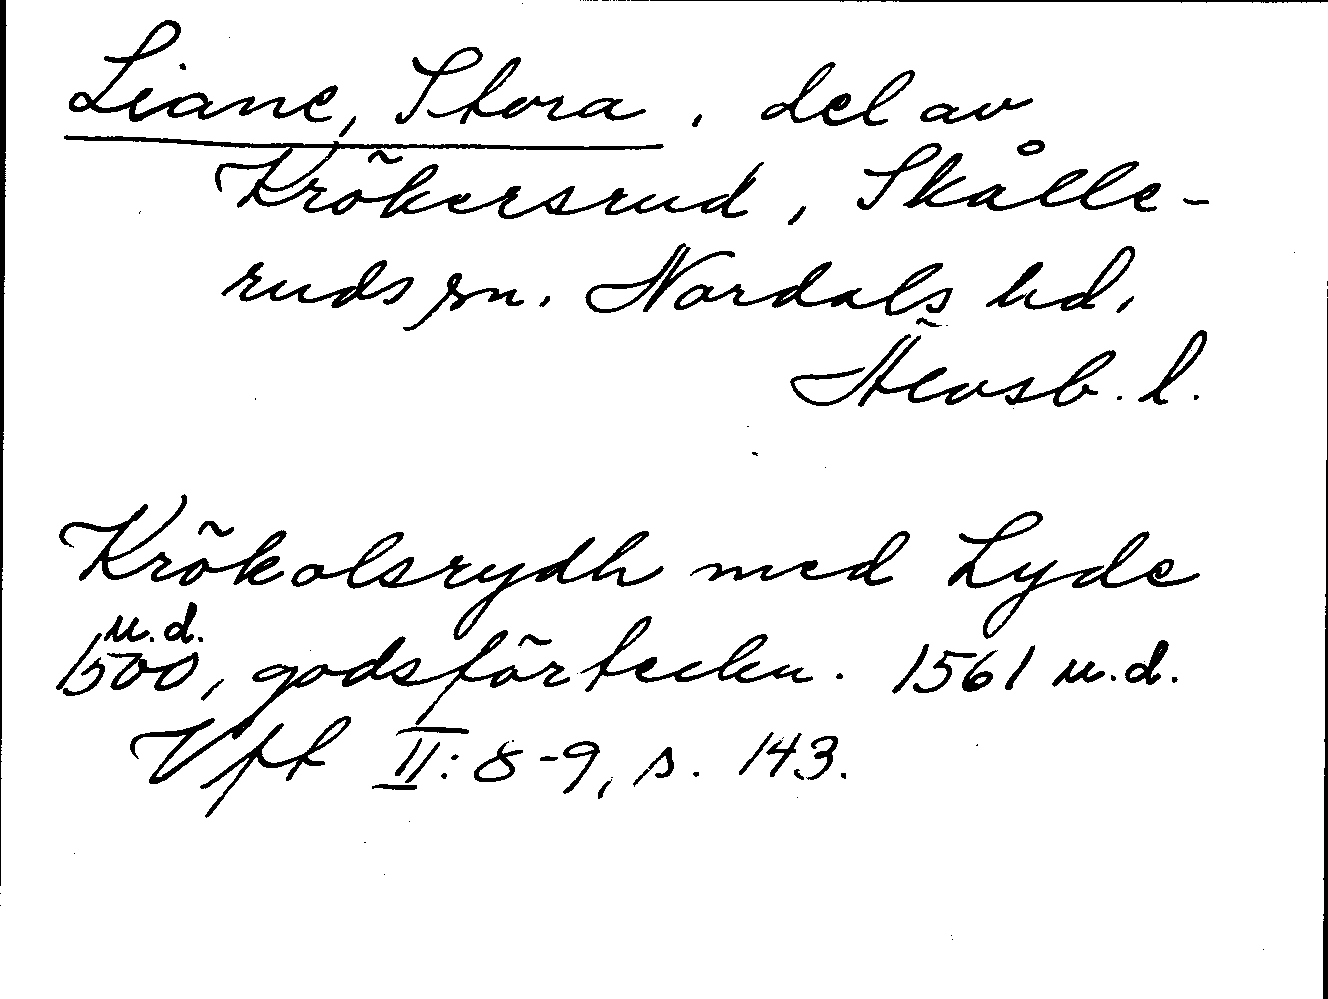 Liane, Stora, del av
Krökersrud, Skålle-
ruds sn. Nordals hd.
Älvsb. l.
Krökolsrydh med Lyde
u.d.
1500, godsförteckn. 1561 u.d.
Vft II: 8-9, s. 143.